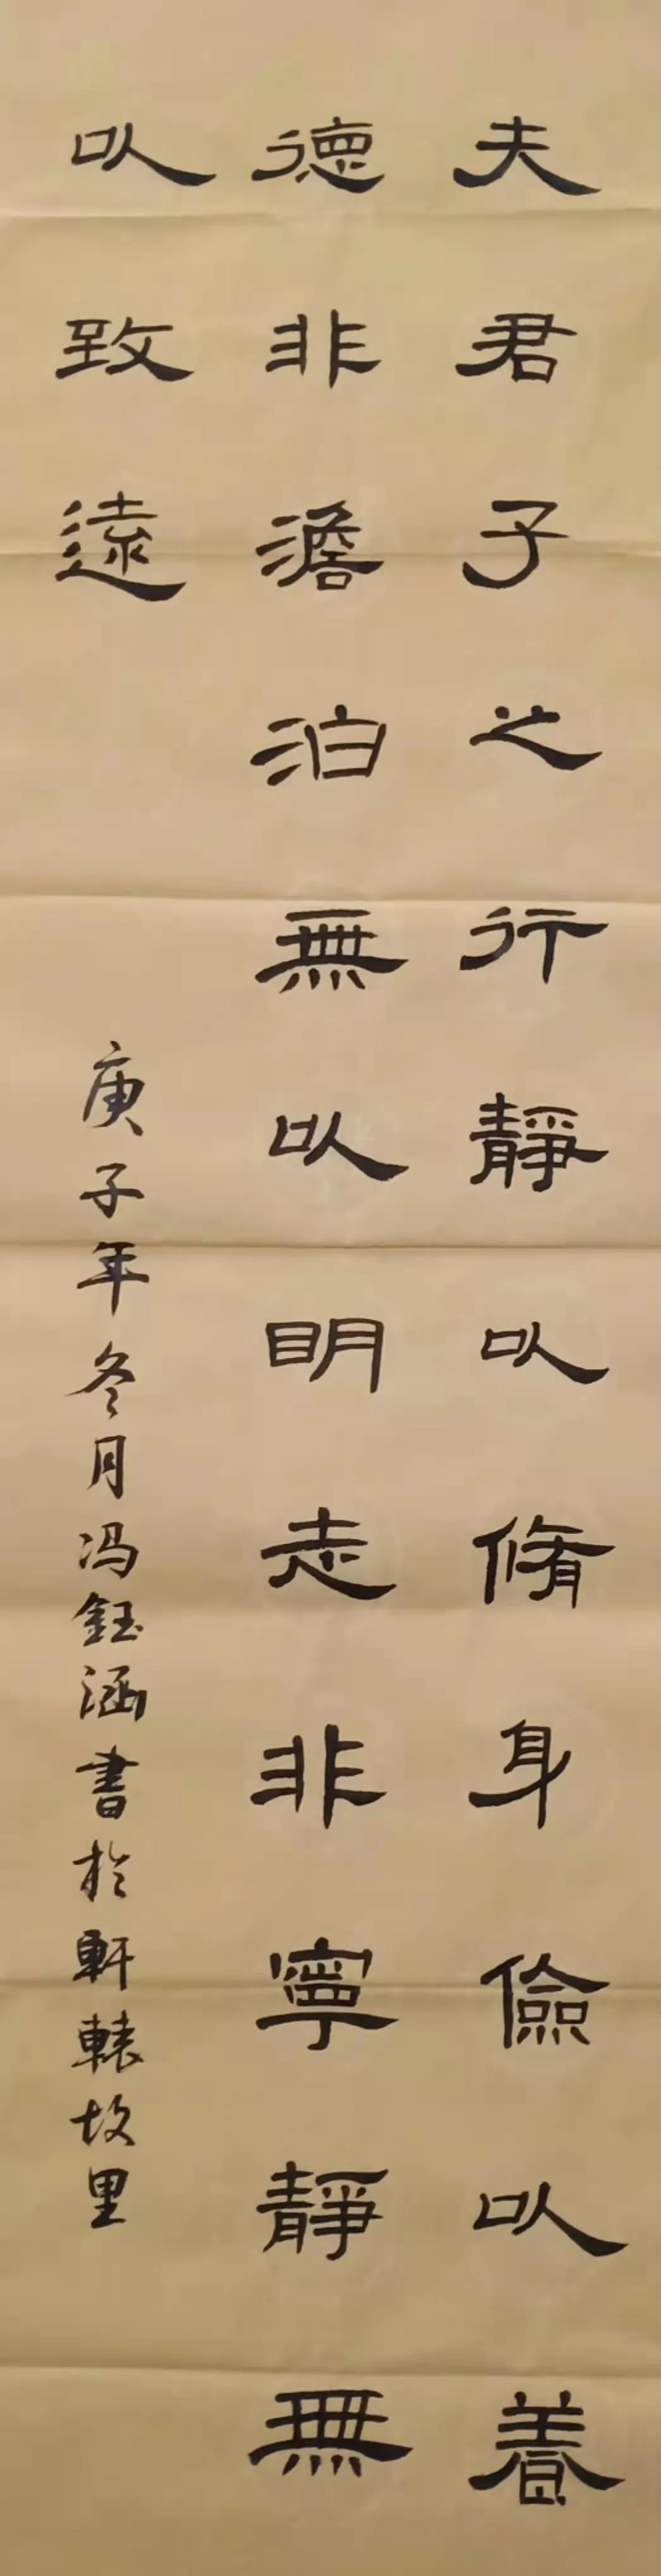 夫君子之行靜以脩身儉以養
德非澹泊無以明志非寧靜無
以致遠
庚子年冬月冯鈺涵書於軒轅故里